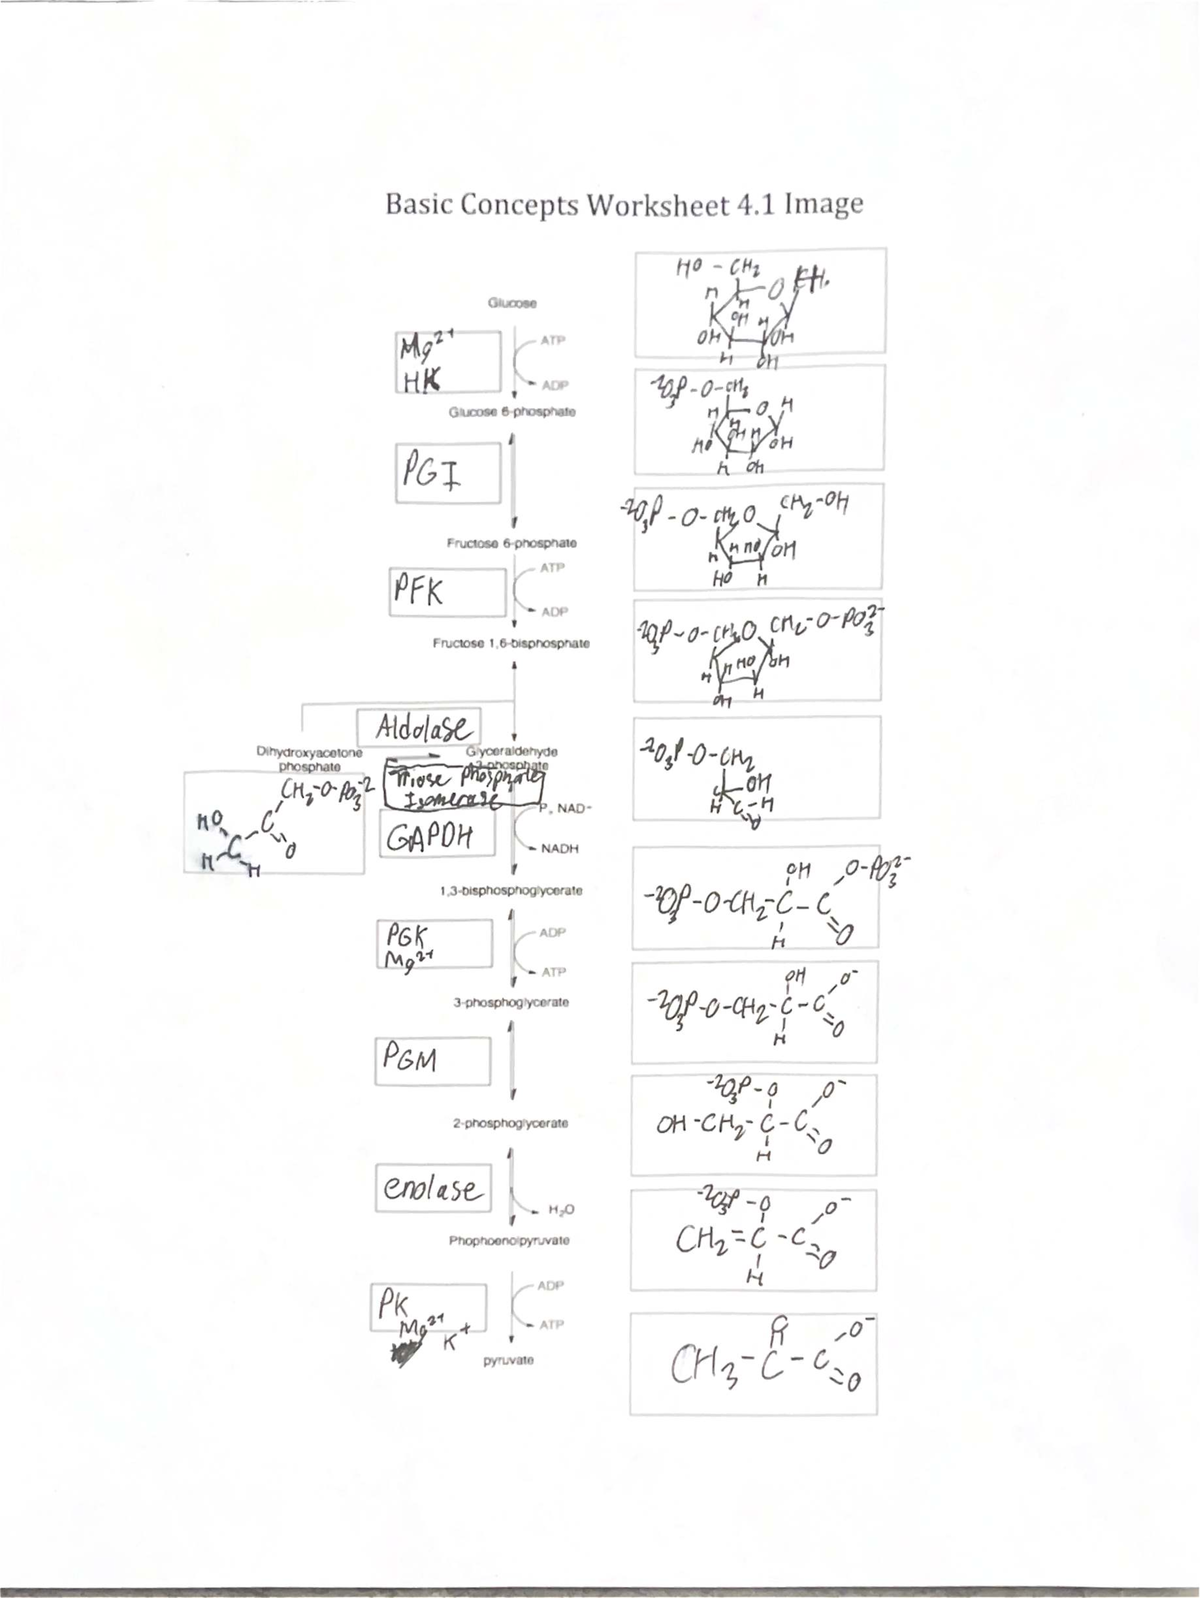 Basic Concepts Worksheet 4.1 Image
Glucose
Mg2+
HK
ATP
ADP
Glucose 6-phosphate
PGI
Fructose 6-phosphate
PFK
ATP
ADP
Fructose 1,6-bisphosphate
Aldolase
Dihydroxyacetone
phosphate
Glyceraldehyde
3-phosphate
Triose phosphate
Isomerase
CH2-O-PO3-2
HO
C
O
C
H
H
GAPDH
P, NAD-
NADH
1,3-bisphosphoglycerate
PGK
Mg2+
ADP
ATP
3-phosphoglycerate
PGM
2-phosphoglycerate
enolase
H2O
Phophoenolpyruvate
PK
Mg2+
K+
ADP
ATP
pyruvate
HO - CH2
H
O
H
OH
H
OH
OH
H
OH
-2O3P-O-CH2
H
O
H
H
OH
H
HO
OH
H
OH
-2O3P-O-CH2
O
CH2-OH
H
H
HO
OH
HO
H
-2O3P-O-CH2
O
CH2-O-PO3 2-
H
H
HO
OH
OH
H
-2O3P-O-CH2
C-OH
H
C-H
O
OH
O-PO3 2-
-2O3P-O-CH2-C-C
H
O
OH
O-
-2O3P-O-CH2-C-C
H
O
-2O3P-O
O-
OH-CH2-C-C
H
O
-2O3P-O
O-
CH2=C-C
H
O
O-
CH3-C-C
O